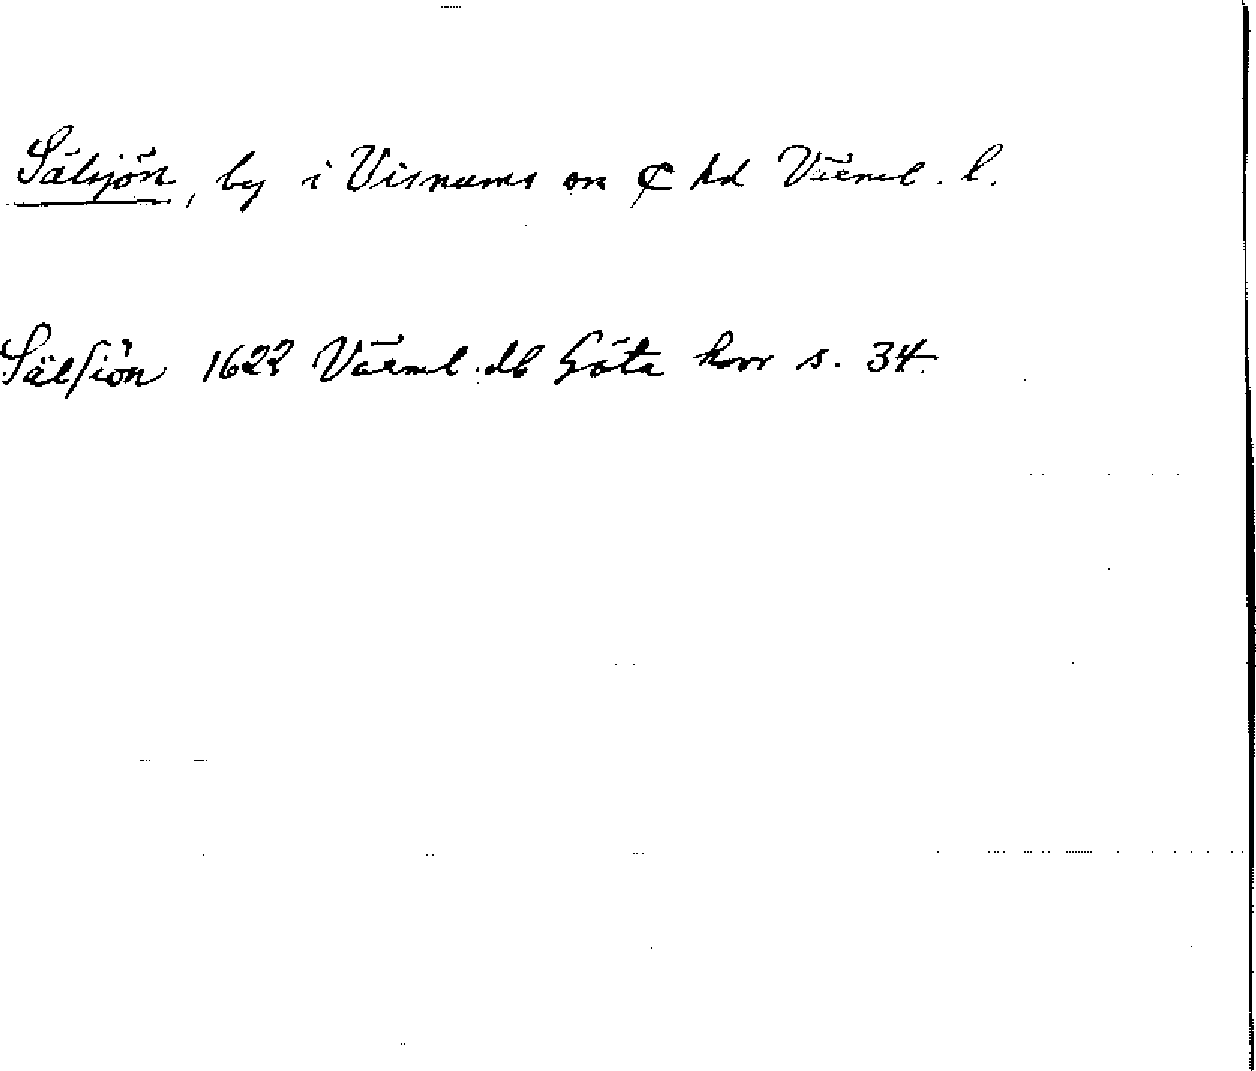 Sälsjön, by i Visnums sn ₵ hd Värml. l.
Sälsiön 1622 Värml. db Göta hovr s. 34